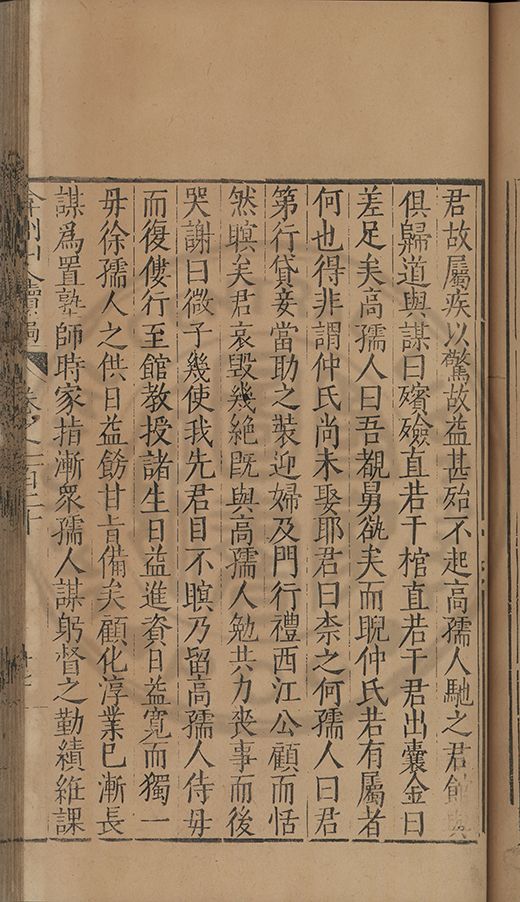 君故屬疾以驚故益甚殆不起高孺人馳之君館與
俱歸道與謀曰殯殮直若干棺直若干君出囊金曰
差足矣高孺人曰吾覩舅欲矣而睨仲氏若有屬者
何也得非謂仲氏尚未娶耶君曰柰之何孺人曰君
第行貸妾當助之裝迎婦及門行禮西江公顧而恬
然瞑矣君哀毀幾絶旣與高孺人勉共力喪事而後
哭謝曰微子幾使我先君目不瞑乃留高孺人侍毋
而復僂行至館教授諸生日益進資日益寬而獨一
毋徐孺人之供日益飭甘旨備矣顧化淳業已漸長
謀爲置塾師時家指漸衆孺人謀躬督之勤績維課
弇州山人續稿 卷之一百二十